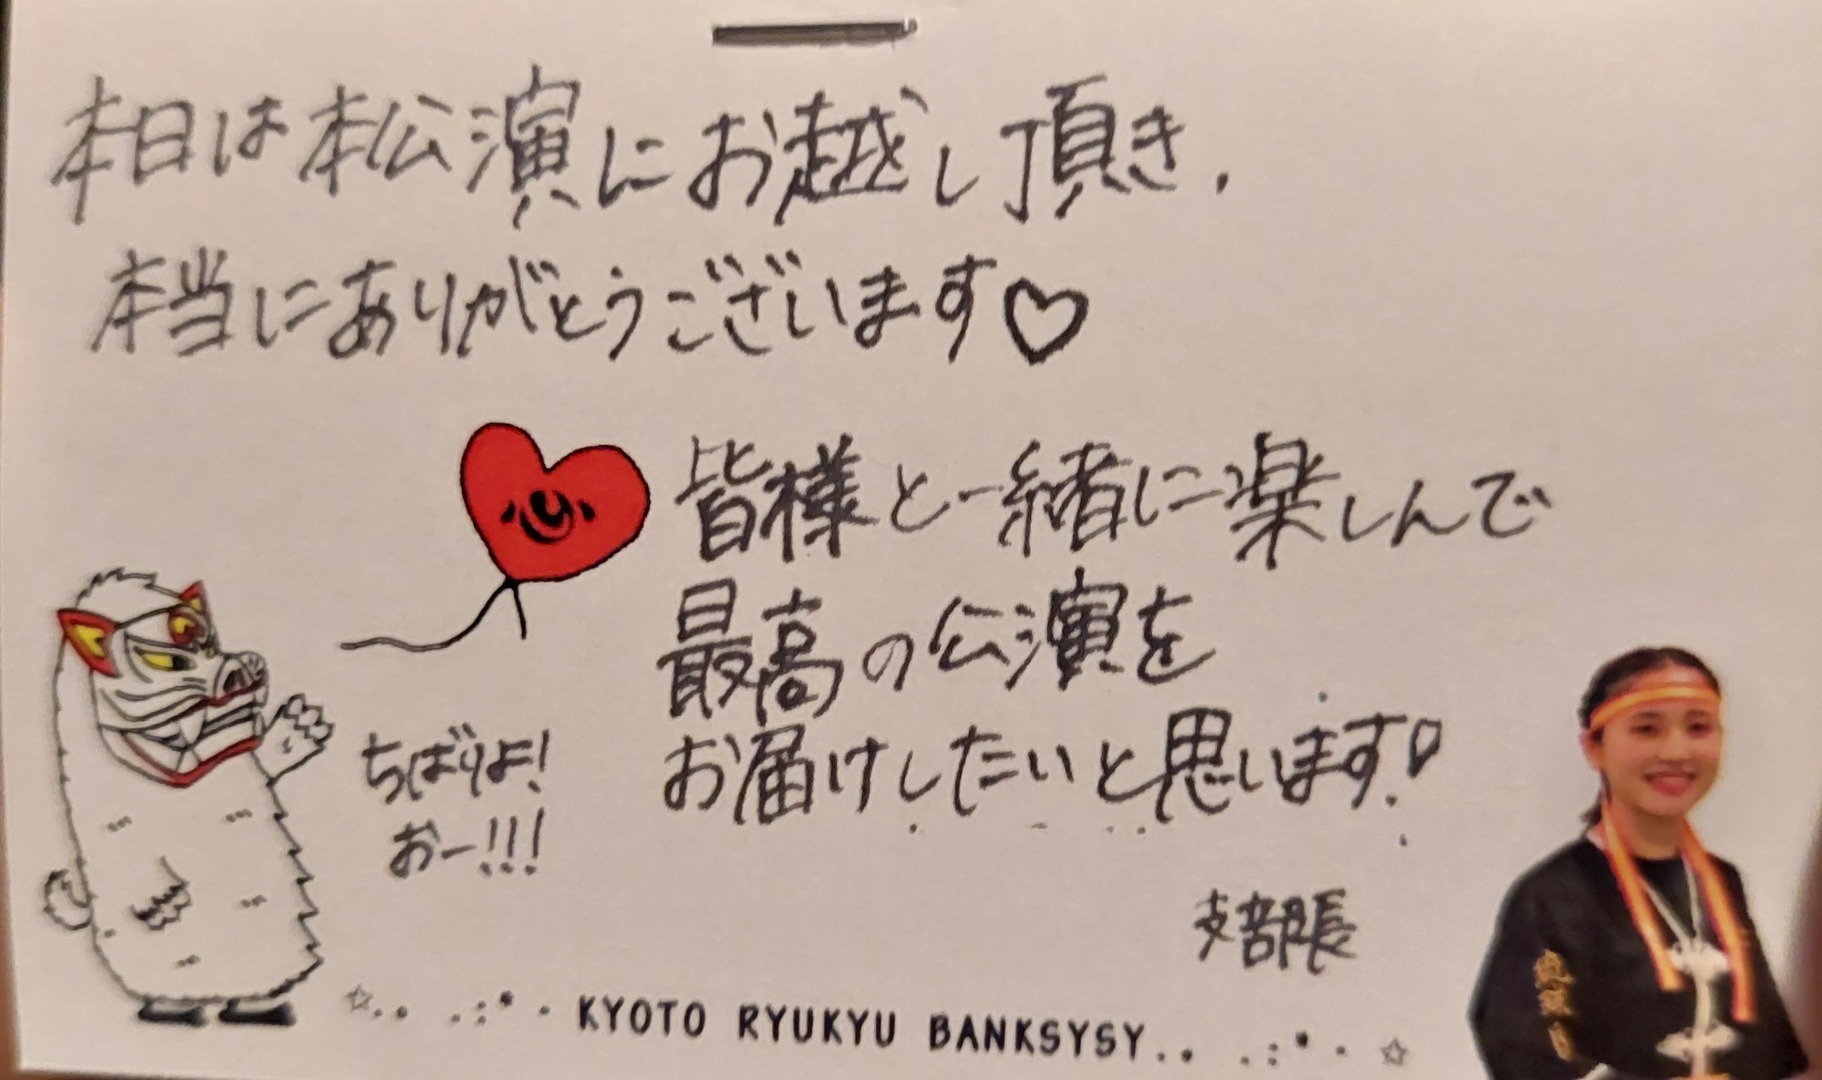 本日は本公演にお越し頂き、
本当にありがとうございます♡
皆様と一緒に楽しんで
最高の公演を
お届けしたいと思います!
ちばりよ!
おー!!!
支部長
☆.. .:*・KYOTO RYUKYU BANKSYSY.. .:*・☆